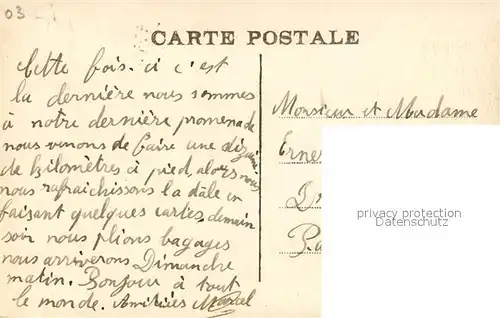 03
CARTE POSTALE
Cette fois-ci c'est
la dernière nous sommes
à notre dernière promenade
nous venons de faire une dizaine
de kilomètres à pied, alors nous
nous rafraichissons la dâle en
faisant quelques cartes, demain
soir nous plions bagages
nous arriverons Dimanche
matin. Bonjour à tout
le monde. Amitiés Marcel
Monsieur et Madame
Erne
privacy protection
Datenschutz